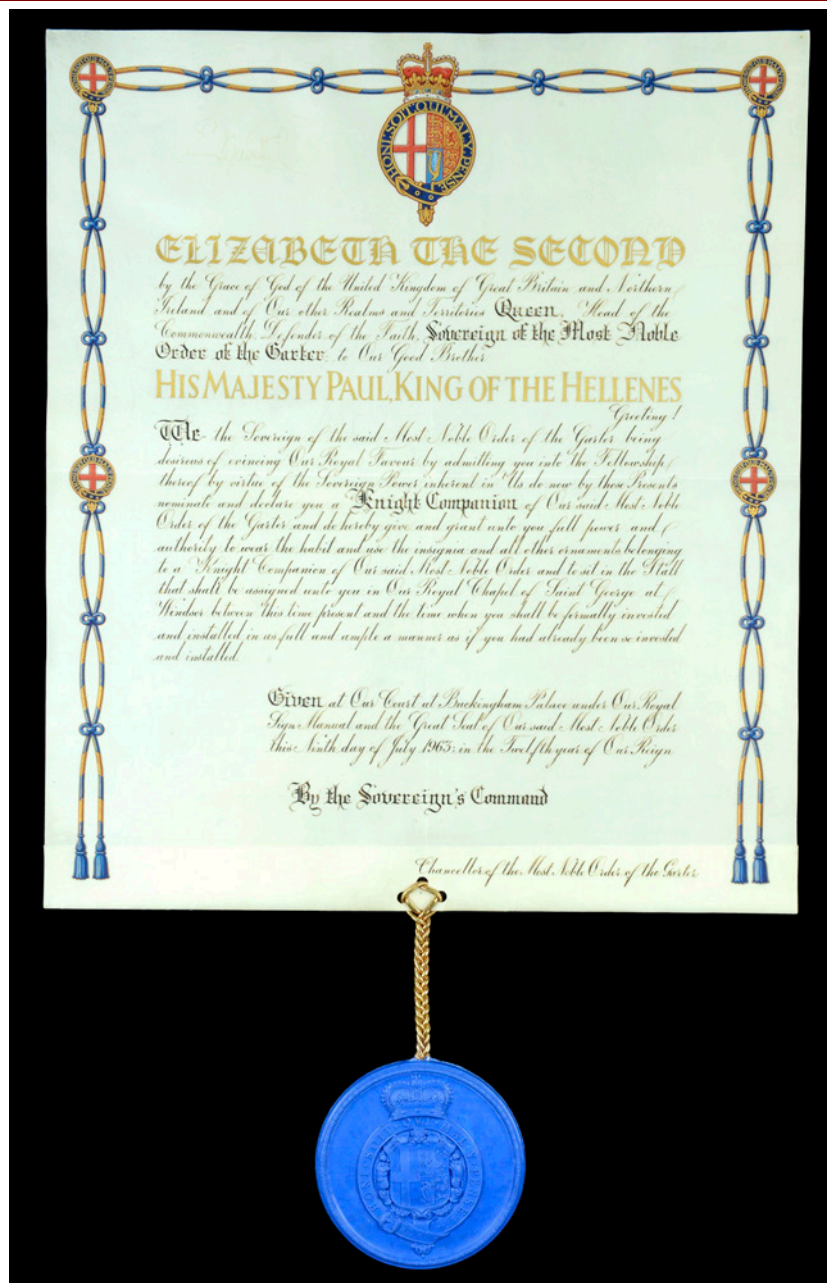 HONI·SOIT·QUI·MAL·Y·PENSE
ELIZABETH THE SECOND
by the Grace of God of the United Kingdom of Great Britain and Northern
Ireland and of Our other Realms and Territories Queen, Head of the
Commonwealth, Defender of the Faith, Sovereign of the Most Noble
Order of the Garter, to Our Good Brother
HIS MAJESTY PAUL, KING OF THE HELLENES
Greeting!
We the Sovereign of the said Most Noble Order of the Garter being
desirous of evincing Our Royal Favour by admitting you into the Fellowship
thereof by virtue of the Sovereign Power inherent in Us do now by these Presents
nominate and declare you a Knight Companion of Our said Most Noble
Order of the Garter and do hereby give and grant unto you full power and
authority to wear the habit and use the insignia and all other ornaments belonging
to a Knight Companion of Our said Most Noble Order and to sit in the Stall
that shall be assigned unto you in Our Royal Chapel of Saint George at
Windsor between this time present and the time when you shall be formally invested
and installed in as full and ample a manner as if you had already been so invested
and installed.
Given at Our Court at Buckingham Palace under Our Royal
Sign Manual and the Great Seal of Our said Most Noble Order
this Ninth day of July 1963: in the Twelfth year of Our Reign
By the Sovereign's Command
Chancellor of the Most Noble Order of the Garter
HONI SOIT QUI MAL Y PENSE